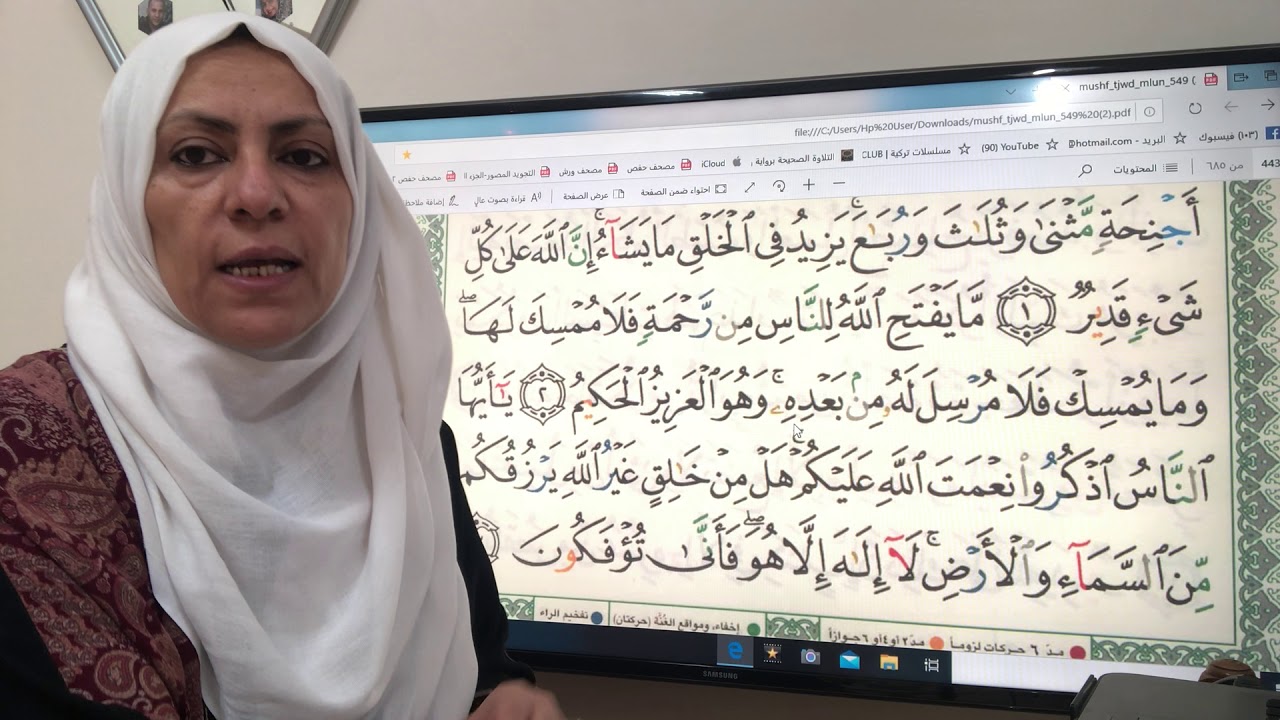 mushf_tjwd_mlun_549 (
file:///C:/Users/Hp%20User/Downloads/mushf_tjwd_mlun_549%20(2).pdf
(١٠٣) فيسبوك
البريد - @hotmail.com
YouTube (90)
مسلسلات تركية | CLUB
التلاوة الصحيحة برواية
iCloud
مصحف حفص
مصحف ورش
التجويد المصور-الجزء اا
مصحف حفص 2
443 من ٦٨٥
المحتويات
احتواء ضمن الصفحة
عرض الصفحة
قراءة بصوت عالٍ
إضافة ملاحظ
أَجْنِحَةٍ مَّثْنَىٰ وَثُلَٰثَ وَرُبَٰعَ ۚ يَزِيدُ فِي ٱلْخَلْقِ مَا يَشَآءُ ۚ إِنَّ ٱللَّهَ عَلَىٰ كُلِّ
شَىْءٍ قَدِيرٌ ١ مَّا يَفْتَحِ ٱللَّهُ لِلنَّاسِ مِن رَّحْمَةٍ فَلَا مُمْسِكَ لَهَا ۖ
وَمَا يُمْسِكْ فَلَا مُرْسِلَ لَهُۥ مِنۢ بَعْدِهِۦ ۚ وَهُوَ ٱلْعَزِيزُ ٱلْحَكِيمُ ٢ يَٰٓأَيُّهَا
ٱلنَّاسُ ٱذْكُرُوا۟ نِعْمَتَ ٱللَّهِ عَلَيْكُمْ ۚ هَلْ مِنْ خَٰلِقٍ غَيْرُ ٱللَّهِ يَرْزُقُكُم
مِّنَ ٱلسَّمَآءِ وَٱلْأَرْضِ ۚ لَآ إِلَٰهَ إِلَّا هُوَ ۖ فَأَنَّىٰ تُؤْفَكُونَ
مدّ ٦ حركات لزوماً
مدّ ٢ او ٤ او ٦ جوازاً
إخفاء، ومواقع الغُنَّة (حركتان)
تفخيم الراء
SAMSUNG